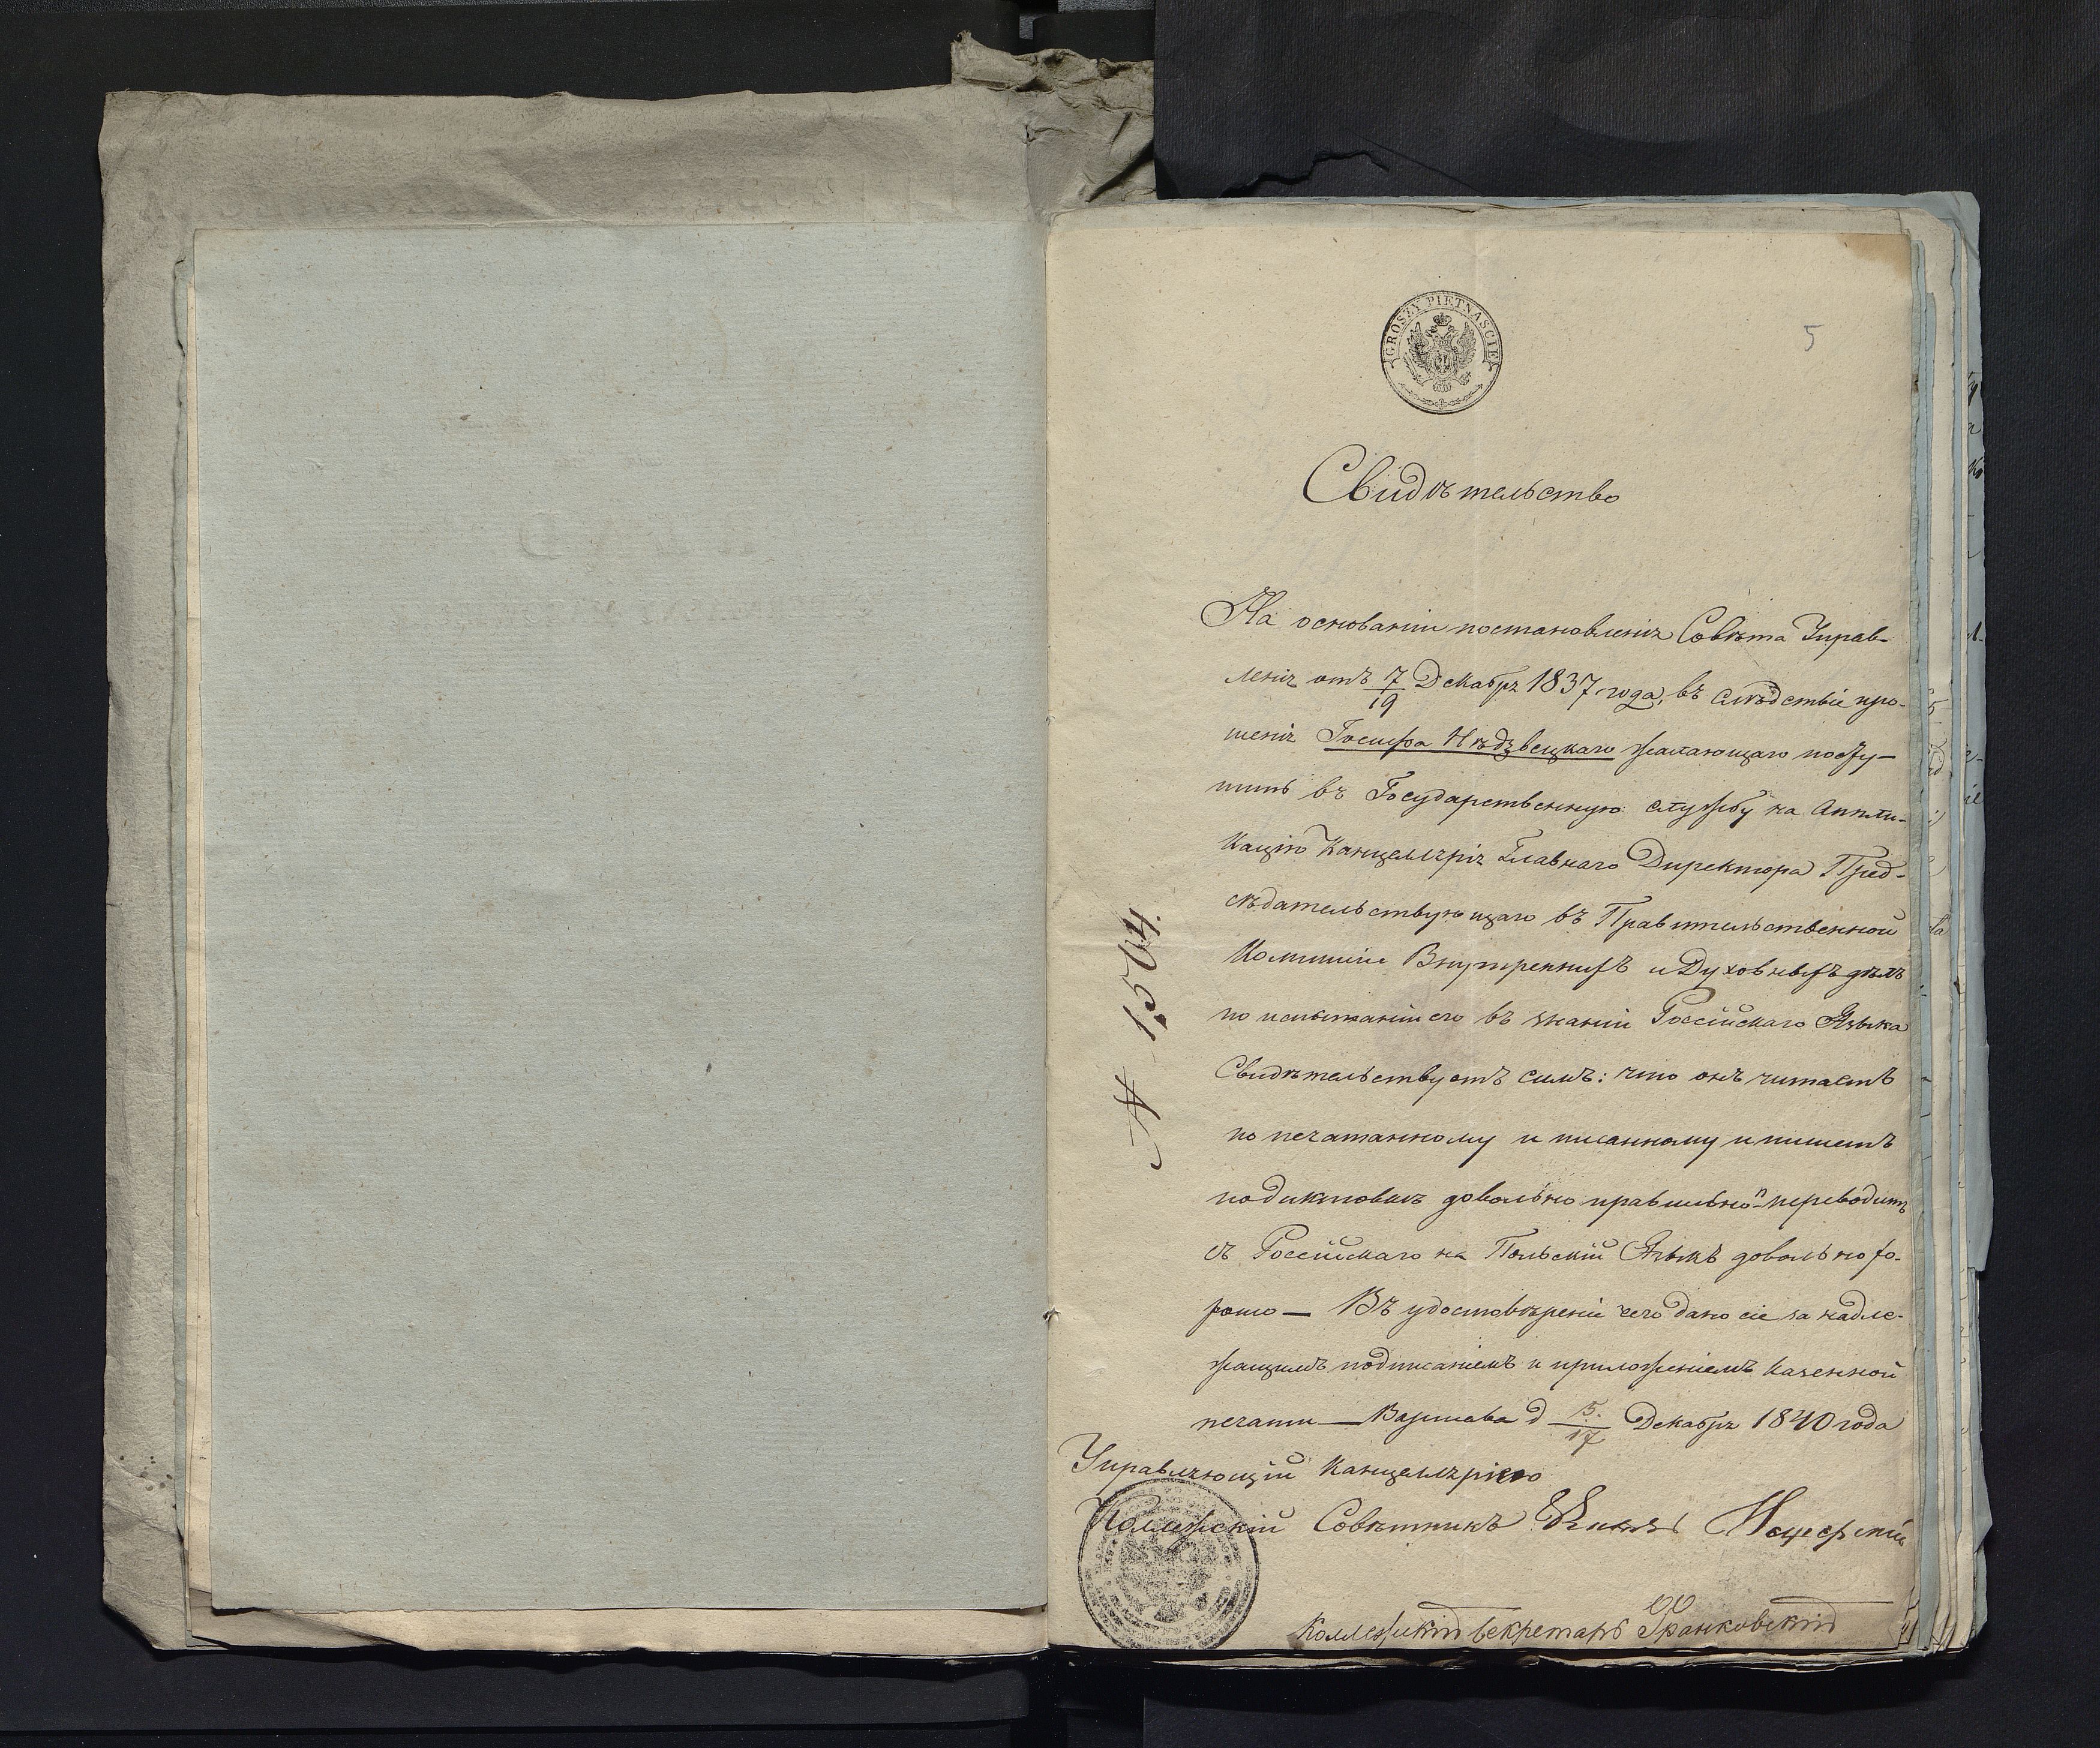 GROSZY PIĘTNAŚCIE
5
Свидѣтельство
На основаніи постановленія Совѣта Управ-
ленія отъ 7/19 Декабря 1837 года, въ слѣдствіе про-
шенія Іосифа Нѣдзвецкаго желающаго посту-
пить въ Государственную службу на Аппли-
кацію Канцелярія Главнаго Директора Пред-
сѣдательствующаго въ Правительственной
Коммисіи Внутреннихъ и Духовныхъ дѣлъ
по испытаніи его въ знаніи Россійскаго Языка
Свидѣтельствуетъ симъ: что онъ читаетъ
по печатанному и писанному и пишетъ
подиктовкѣ довольно правильно и переводитъ
съ Россійскаго на Польскій Языкъ довольно хо-
рошо — Въ удостовѣреніе чего дано сіе за надле-
жащимъ подписаніемъ и приложеніемъ казенной
печати — Варшава д 5/17 Декабря 1840 года
Управляющій Канцеляріею
Коллежскій Совѣтникъ Князь
Коллежскій Секретарь Франковскій
№ 1504.